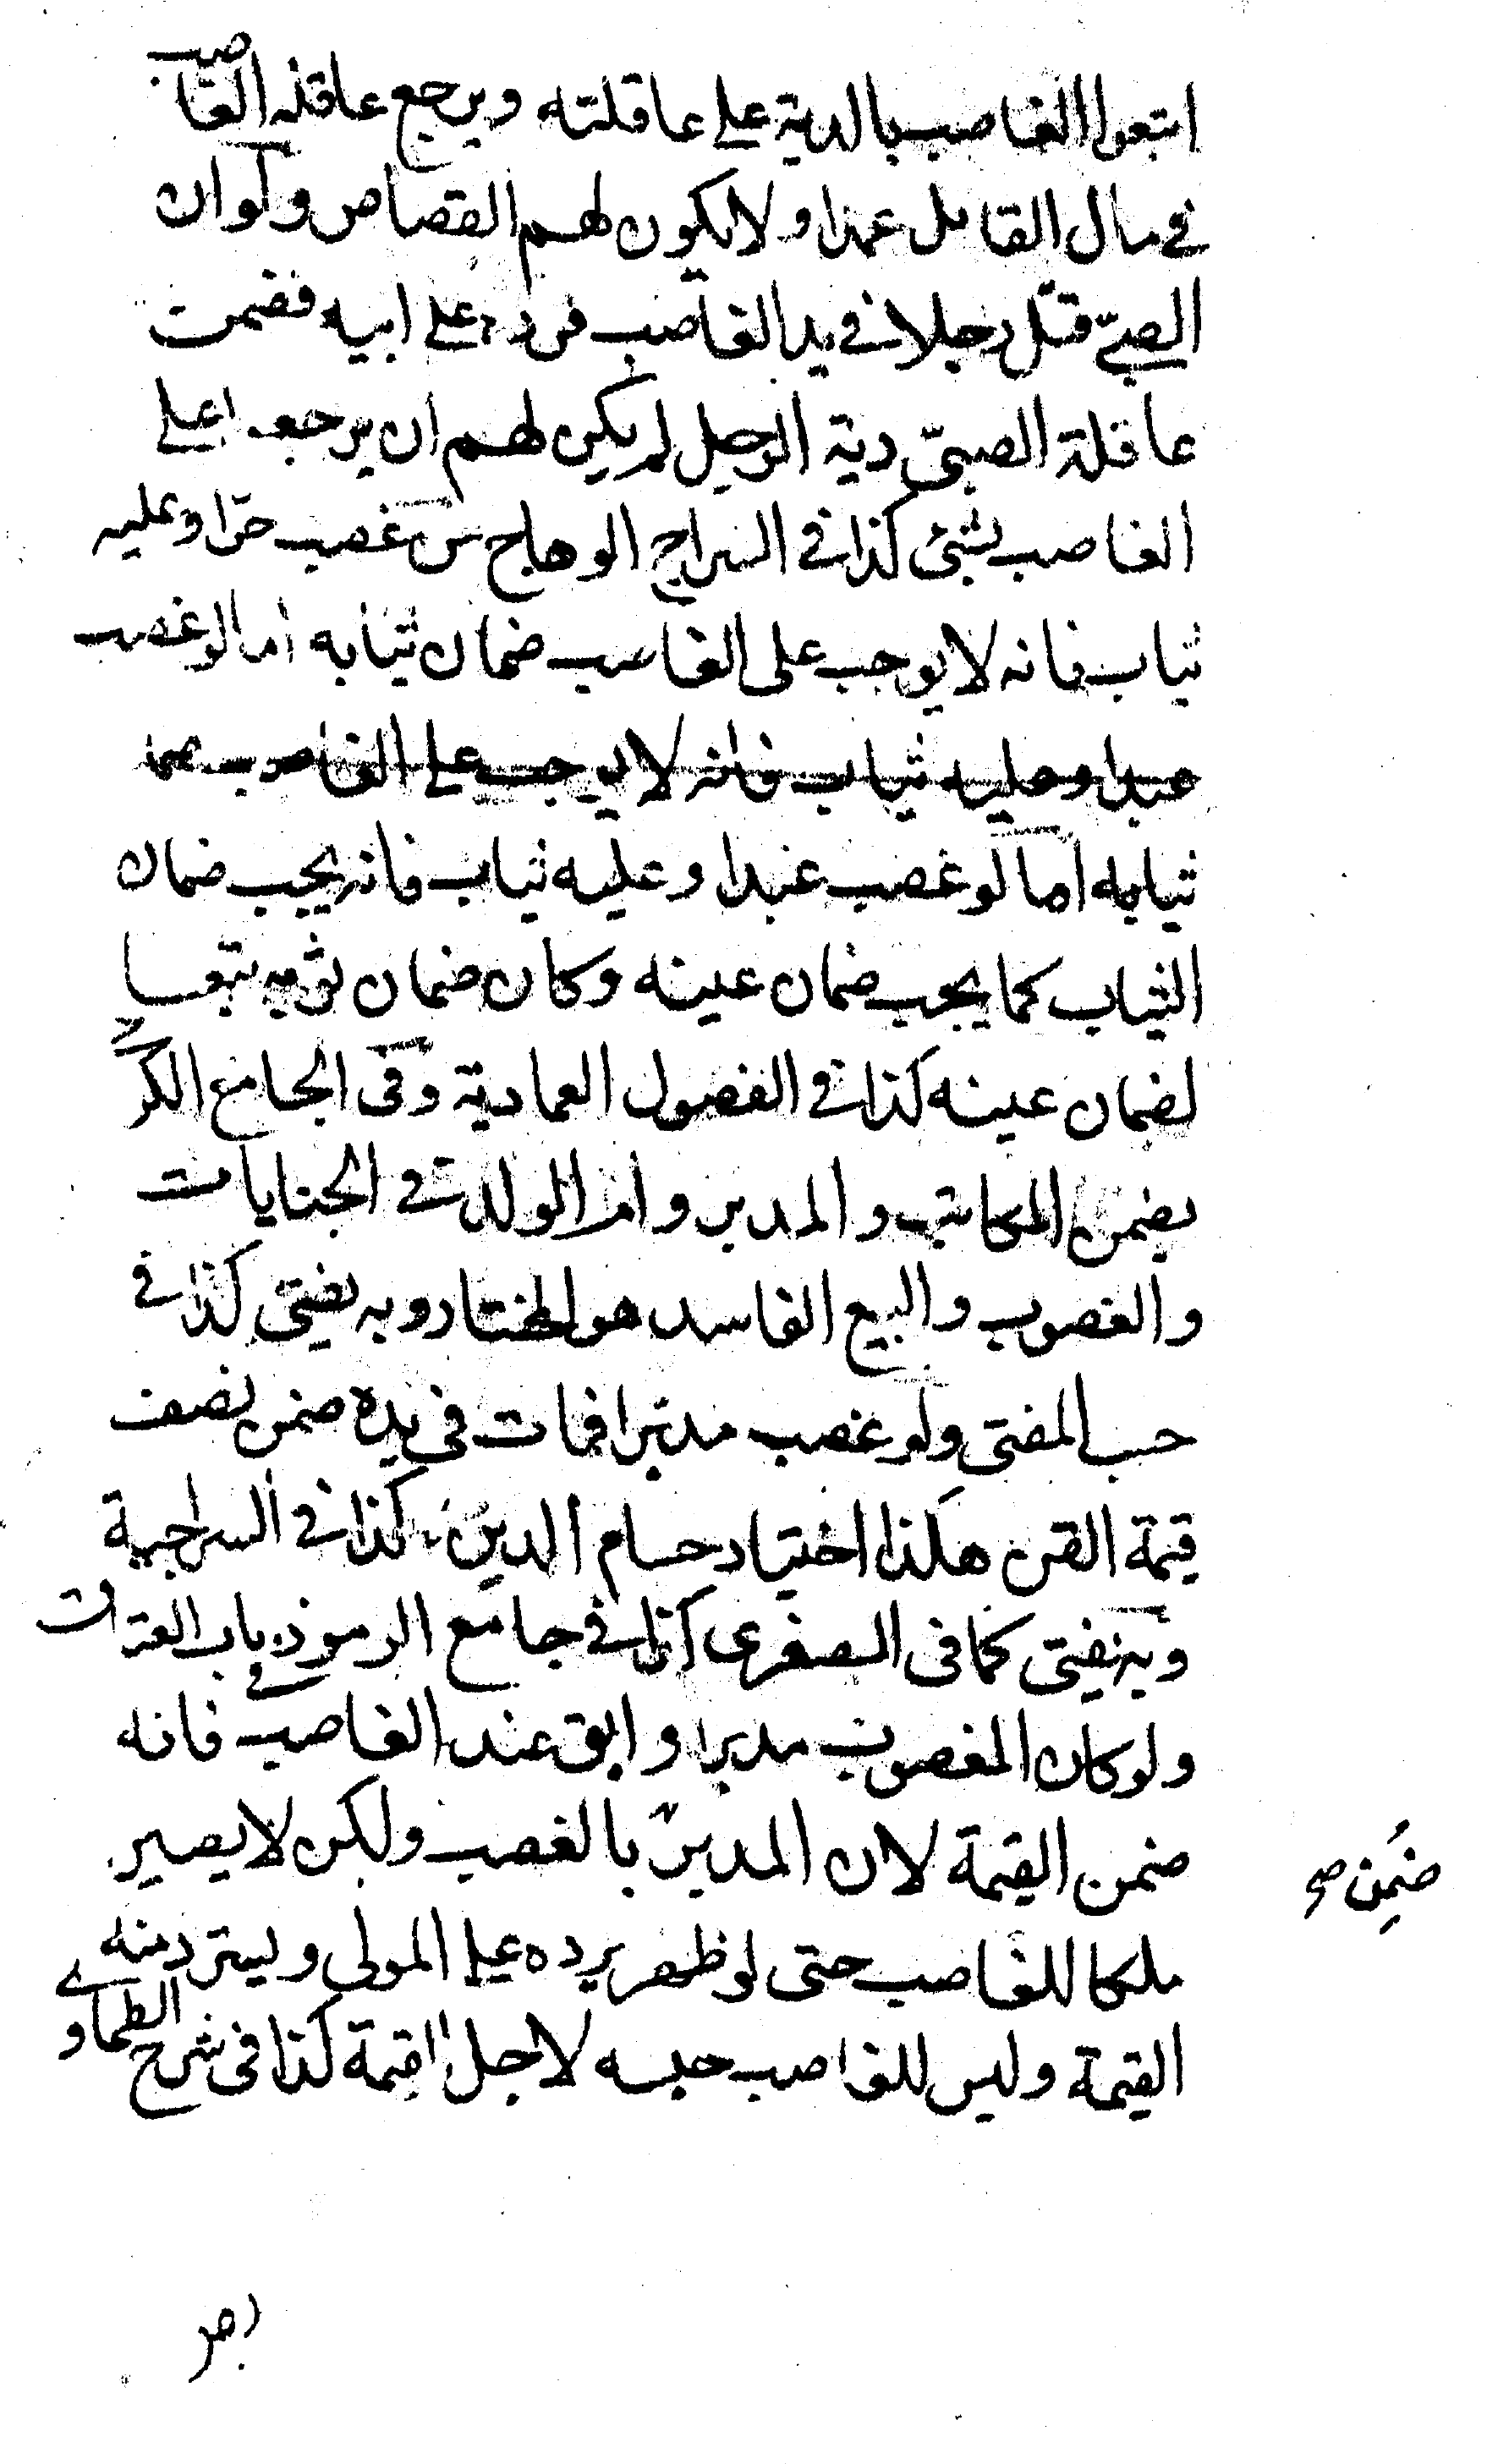 اتبعوا الغاصب بالدية على عاقلته ويرجع عاقلة الغاصب
في مال القاتل عمدا ولا يكون لهم القصاص ولو ان
الصبيّ قتل رجلا في يد الغاصب فرده على ابيه فضمنت
عاقلة الصبيّ دية الرجل لم يكن لهم ان يرجعوا على
الغاصب بشئ كذا في السراج الوهاج من غصب حرّا وعليه
ثياب فانه لا يوجب على الغاصب ضمان ثيابه اما لو غصب
عبدا وعليه ثياب فانه لا يوجب على الغاصب ضما
ثيابه اما لو غصب عبدا وعليه ثياب فانه يجب ضمان
الثياب كما يجب ضمان عينه وكان ضمان ثوبه تبعا
لضمان عينه كذا في الفصول العمادية وفى الجامع الكر
يضمن المكاتب والمدبر وام الولد في الجنايات
والغصوب والبيع الفاسد هو المختار وبه يفتى كذا في
حسب المفتى ولو غصب مدبّرا فمات في يده ضمن نصف
قيمة القن هكذا اختيار حسام الدين كذا في السراجية
وبه يفتى كما فى الصغرى كذا في جامع الرموز في باب
ولو كان المغصوب مدبرا وابق عند الغاصب فانه
ضمن القيمة لان المدبر بالغصب ولكن لا يصير
ضُمِن صح
ملكا للغاصب حتى لو ظهر يرده على المولى ويسترد منه
القيمة وليس للغاصب حبسه لاجل القيمة كذا فى شرح الطحاوي